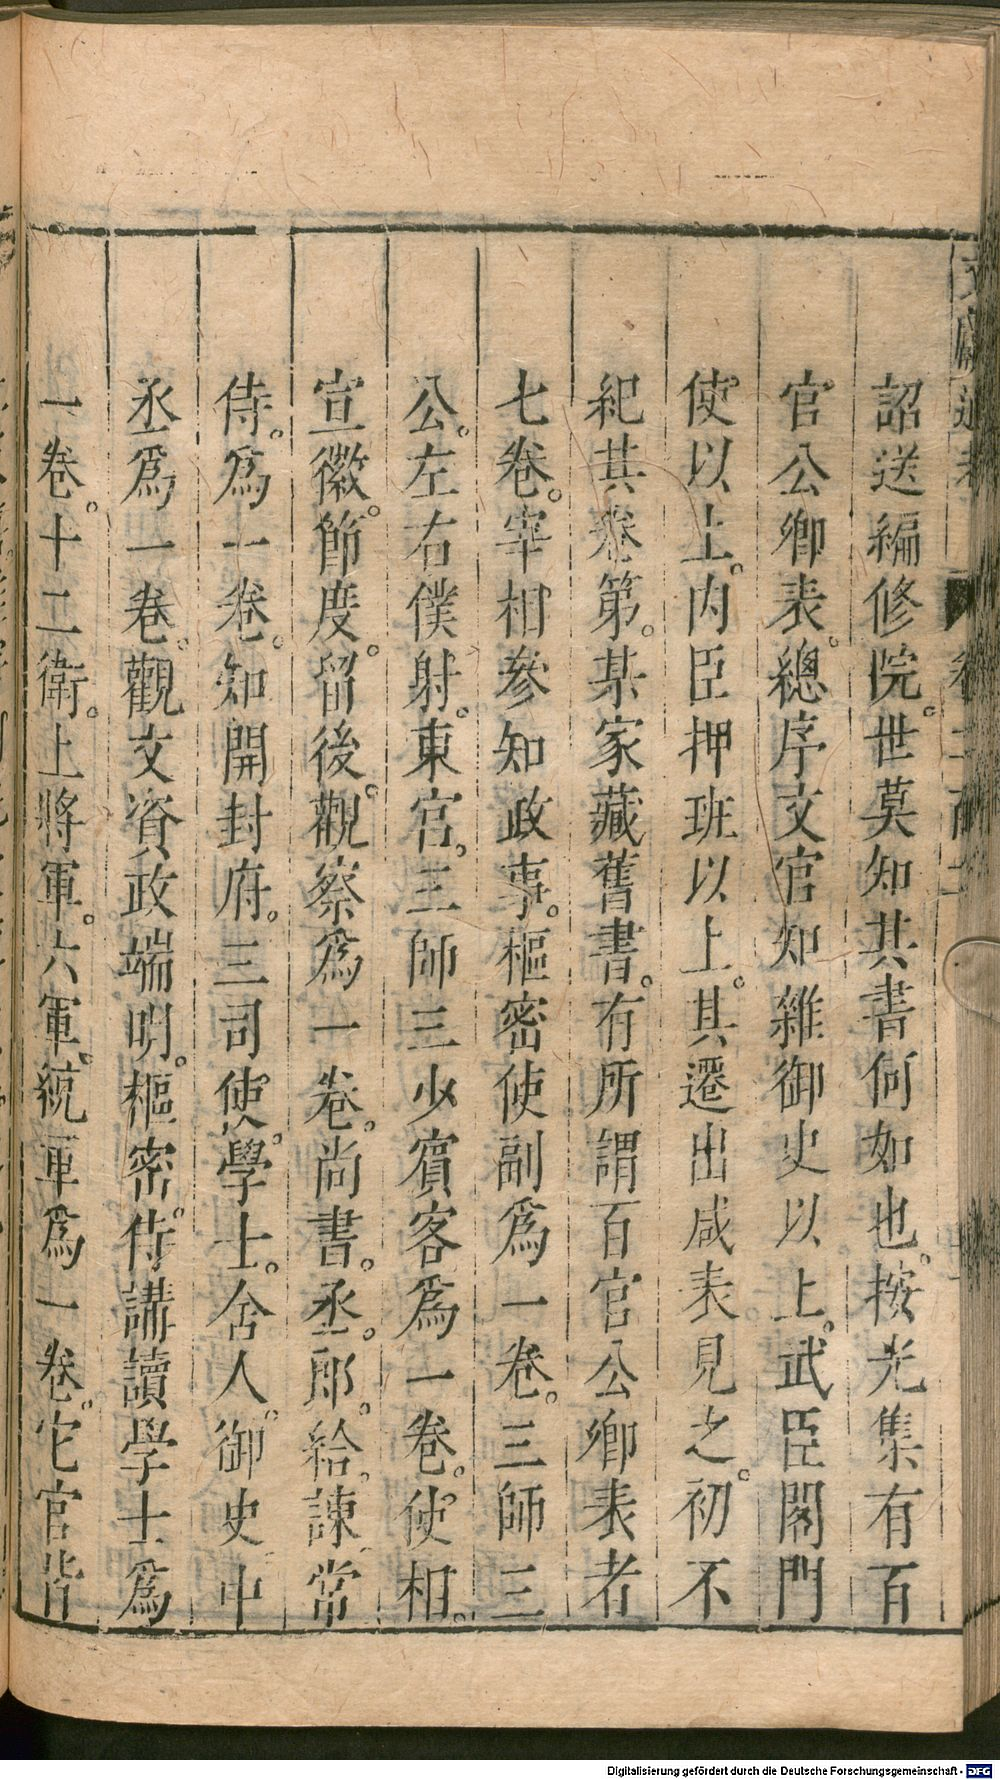 文獻通考 卷二百二
詔送編修院。世莫知其書何如也。按光集有百
官公卿表。總序文官知雜御史以上。武臣閤門
使以上。内臣押班以上。其遷出咸表見之。初不
紀其卷第。某家藏舊書。有所謂百官公卿表者
七卷。宰相參知政事。樞密使副爲一卷。三師三
公。左右僕射。東宮。三師三少賓客爲一卷。使相。
宣徽。節度。留後。觀察爲一卷。尚書。丞。郎。給。諫。常
侍。爲一卷。知開封府。三司使。學士。舍人。御史中
丞爲一卷。觀文資政端明。樞密。侍講讀學士爲
一卷。十二衛。上將軍。六軍。統軍爲一卷。它官皆
Digitalisierung gefördert durch die Deutsche Forschungsgemeinschaft - DFG